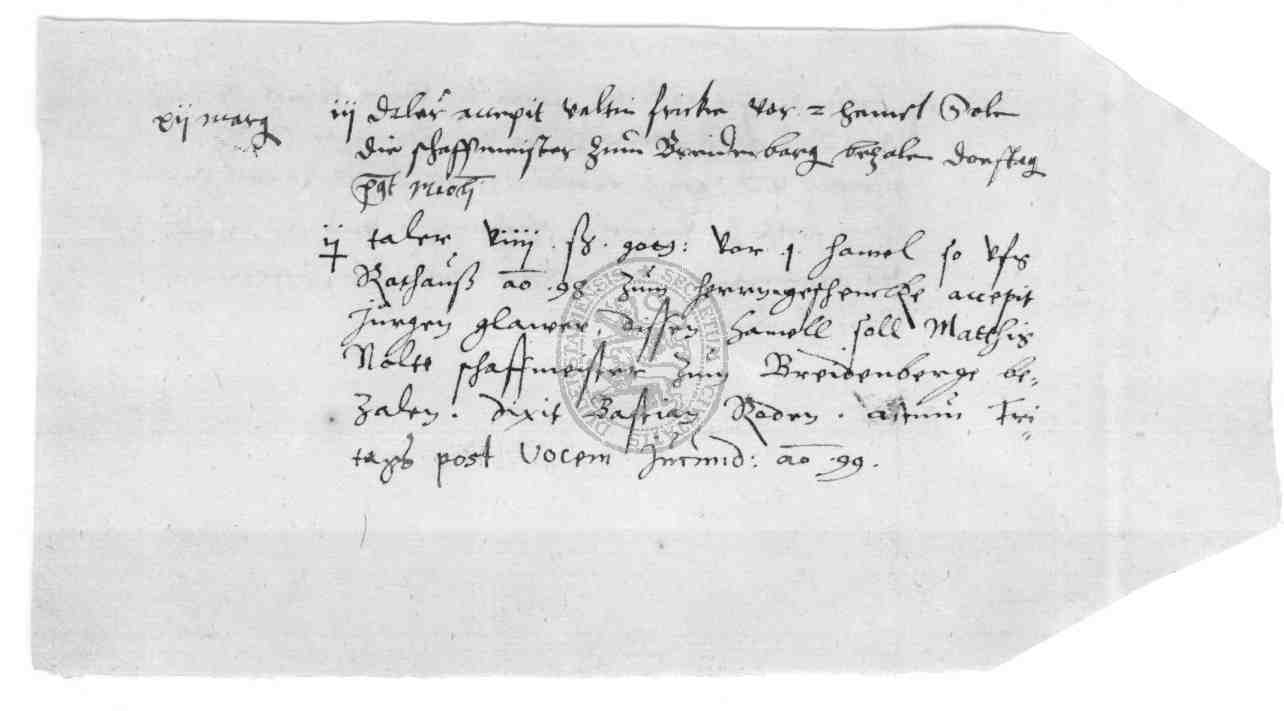 xij marg
iij daler accepit valtin fricke vor 2 hamel Sole
die schaffmeister zum Breidenbarg bezalen donstag
post
ij taler viiij ß. gotg: vor .j. hamel so vfs
Rathauß ao .98 zum herrngeschencke accepit
Jurgen glawer. dissen hamell soll Matthis
Nolte schaffmeister zum Breidenberge be-
zalen. dixit Bastian Roden. actum Fri-
tags post Vocem Jucundid: ao .99.